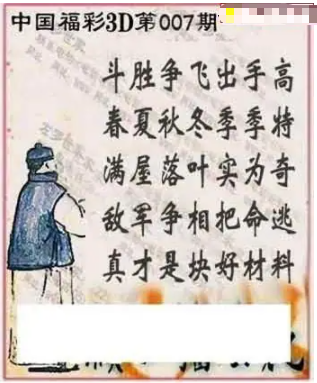 中国福彩3D第007期
斗胜争飞出手高
春夏秋冬季季特
满屋落叶实为奇
敌军争相把命逃
真才是块好材料